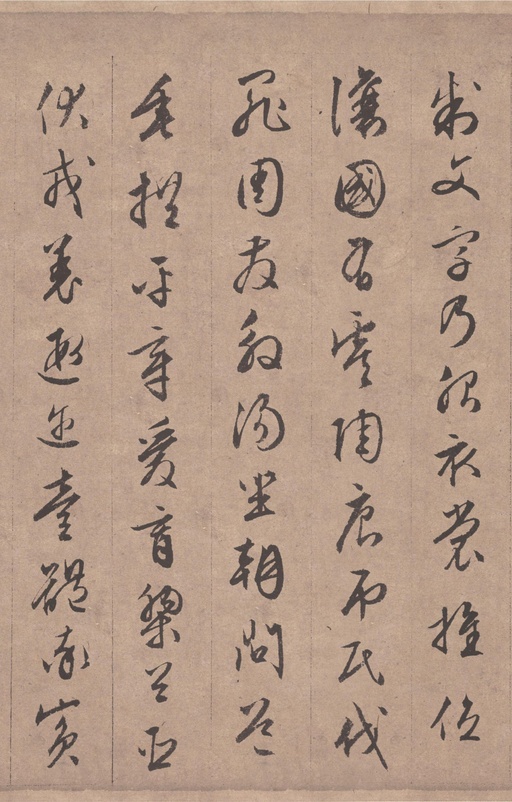 制文字乃服衣裳推位
讓國有虞陶唐弔民伐
罪周發殷湯坐朝問道
垂拱平章愛育黎首臣
伏戎羌遐邇壹體率賓